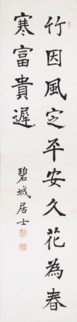 竹因風定平安久花為春
寒富貴遲
碧城居士